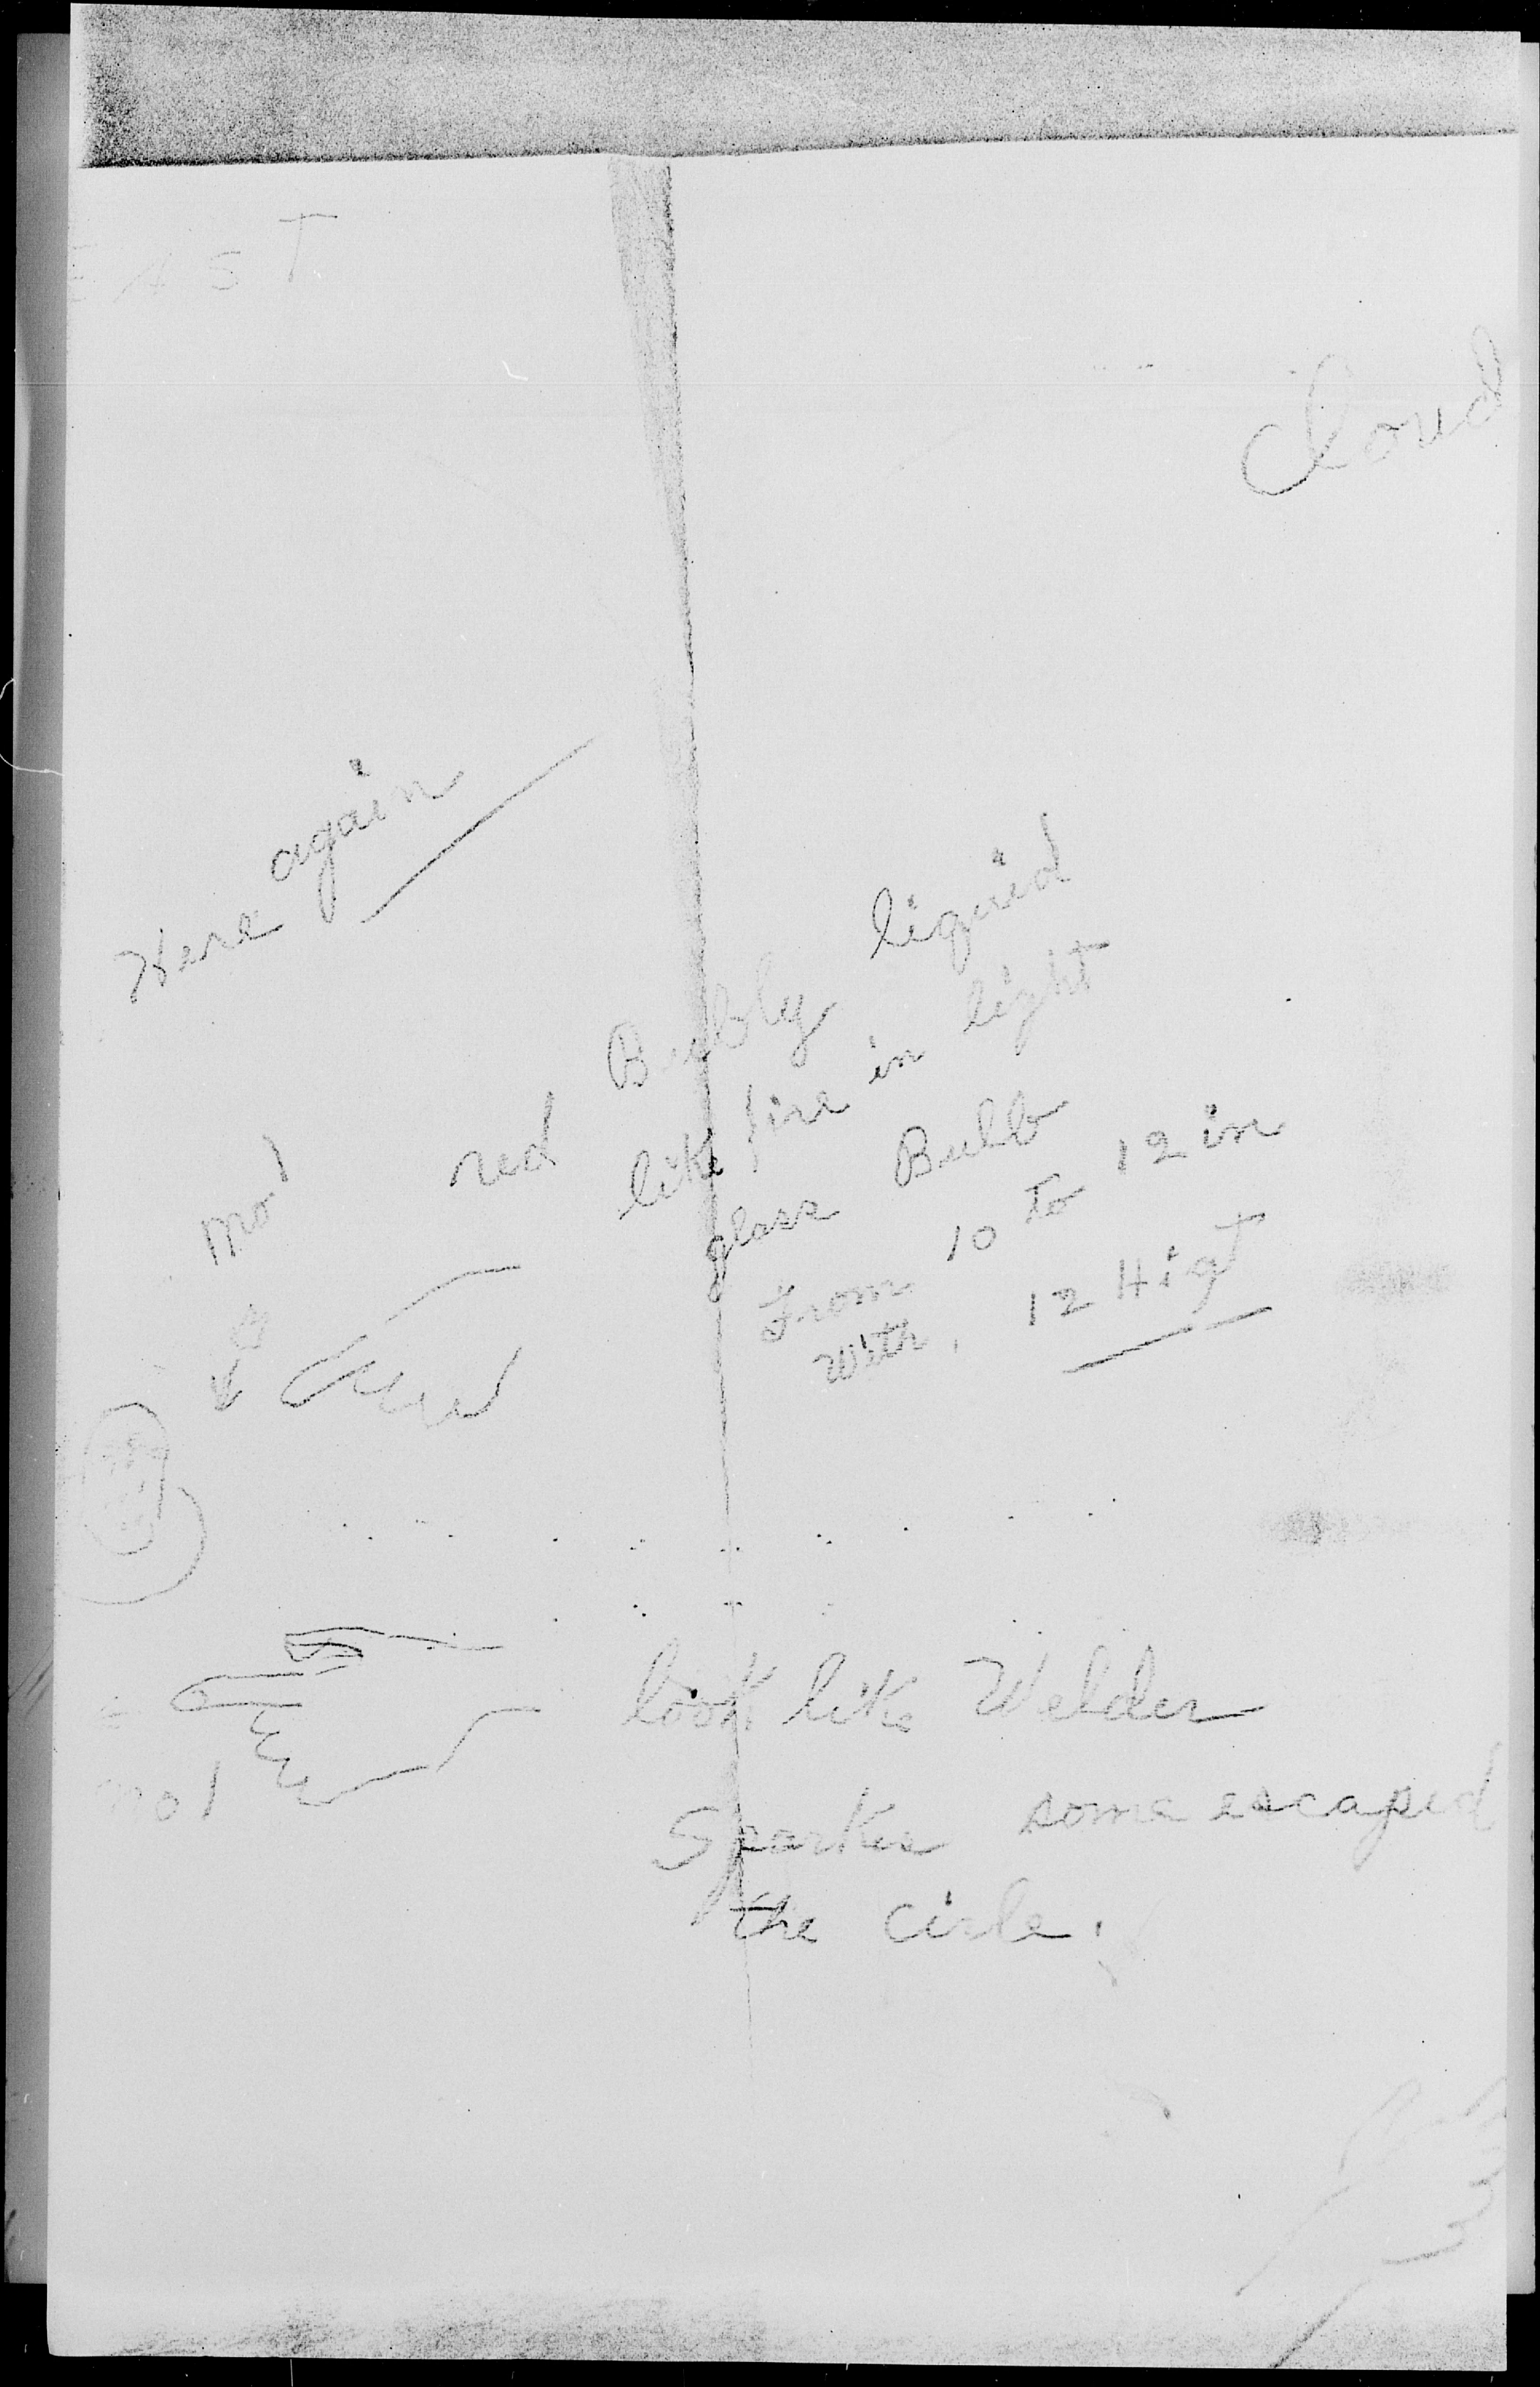 EAST
Cloud
Here again
red Bubbly liquid
like fire in light
glass Bulb
From 10 To 12 in
With, 12 Higt
no 1
look like Welder
no 1
Sparks some escaped
the cirle.